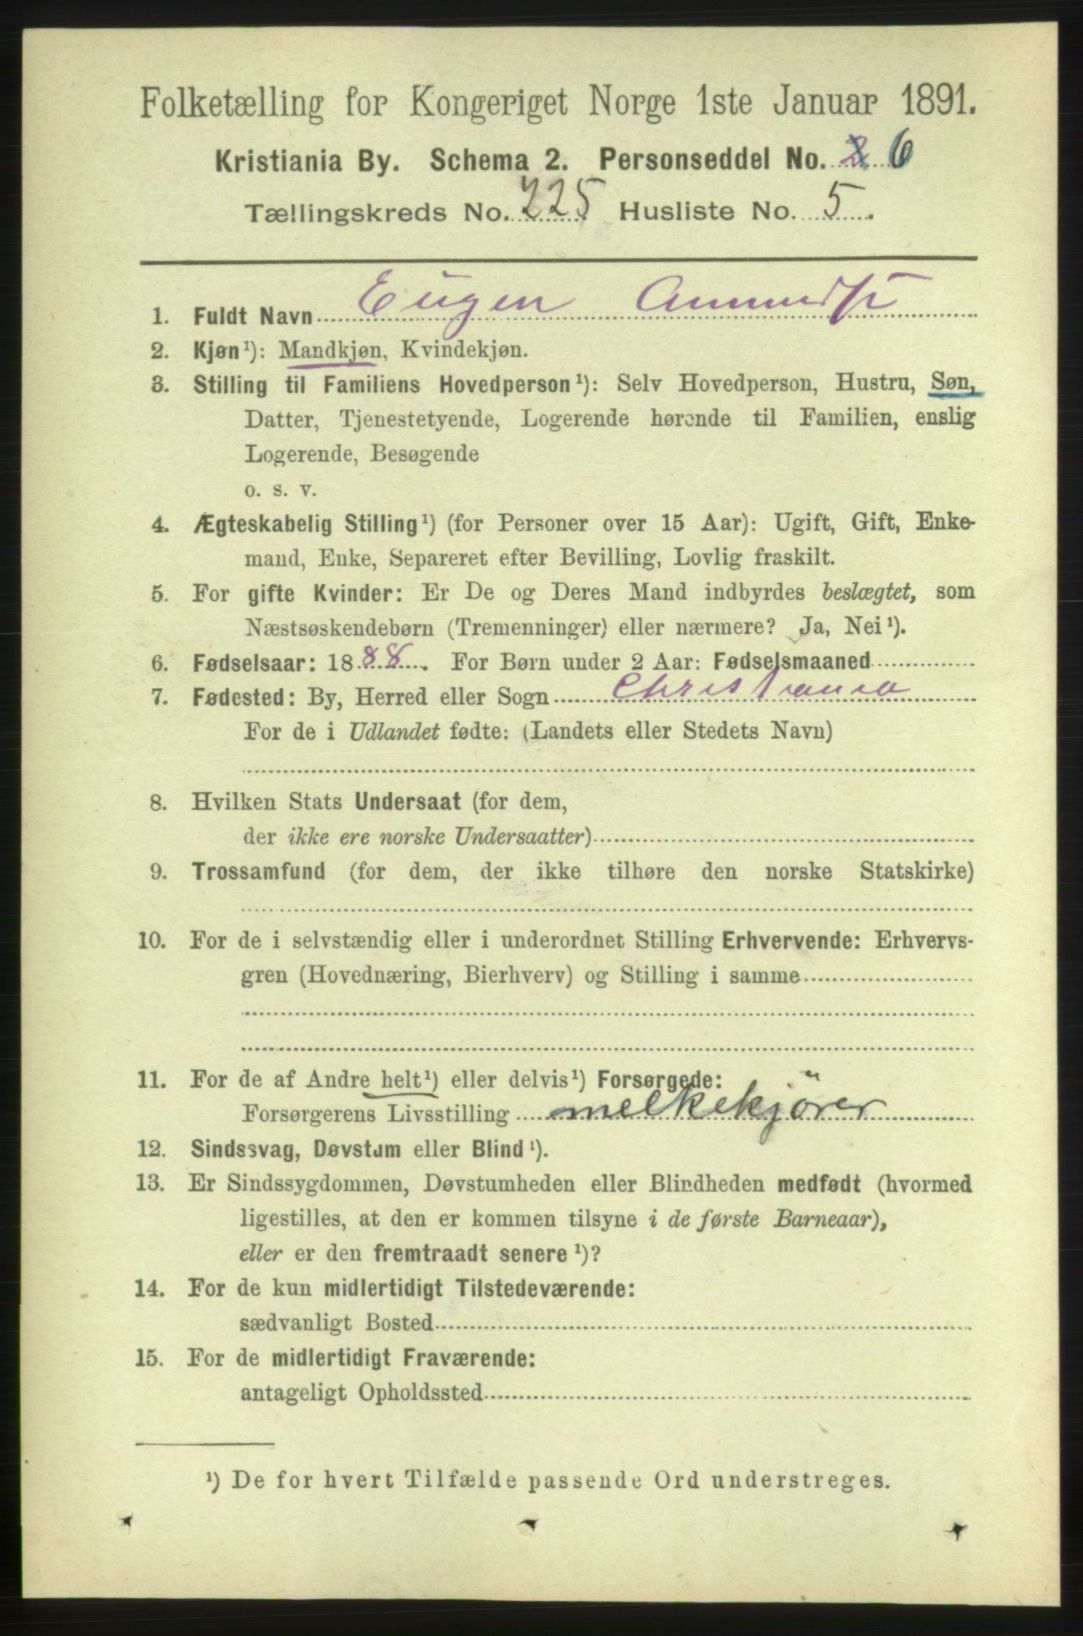 Folketælling for Kongeriget Norge 1ste Januar 1891.
Kristiania By. Schema 2. Personseddel No. 2 6
Tællingskreds No. 225 Husliste No. 5.
1. Fuldt Navn Eugen
2. Kjøn¹): Mandkjøn, Kvindekjøn.
3. Stilling til Familiens Hovedperson¹): Selv Hovedperson, Hustru, Søn,
Datter, Tjenestetyende, Logerende hørende til Familien, enslig
Logerende, Besøgende
o. s. v.
4. Ægteskabelig Stilling¹) (for Personer over 15 Aar): Ugift, Gift, Enke-
mand, Enke, Separeret efter Bevilling, Lovlig fraskilt.
5. For gifte Kvinder: Er De og Deres Mand indbyrdes beslægtet, som
Næstsøskendebørn (Tremenninger) eller nærmere? Ja, Nei¹).
6. Fødselsaar: 1888. For Børn under 2 Aar: Fødselsmaaned
7. Fødested: By, Herred eller Sogn Christiania
For de i Udlandet fødte: (Landets eller Stedets Navn)
8. Hvilken Stats Undersaat (for dem,
der ikke ere norske Undersaatter)
9. Trossamfund (for dem, der ikke tilhøre den norske Statskirke)
10. For de i selvstændig eller i underordnet Stilling Erhvervende: Erhvervs-
gren (Hovednæring, Bierhverv) og Stilling i samme
11. For de af Andre helt¹) eller delvis¹) Forsørgede:
Forsørgerens Livsstilling melkekjører
12. Sindssvag, Døvstum eller Blind¹).
13. Er Sindssygdommen, Døvstumheden eller Blindheden medfødt (hvormed
ligestilles, at den er kommen tilsyne i de første Barneaar),
eller er den fremtraadt senere¹)?
14. For de kun midlertidigt Tilstedeværende:
sædvanligt Bosted
15. For de midlertidigt Fraværende:
antageligt Opholdssted
¹) De for hvert Tilfælde passende Ord understreges.